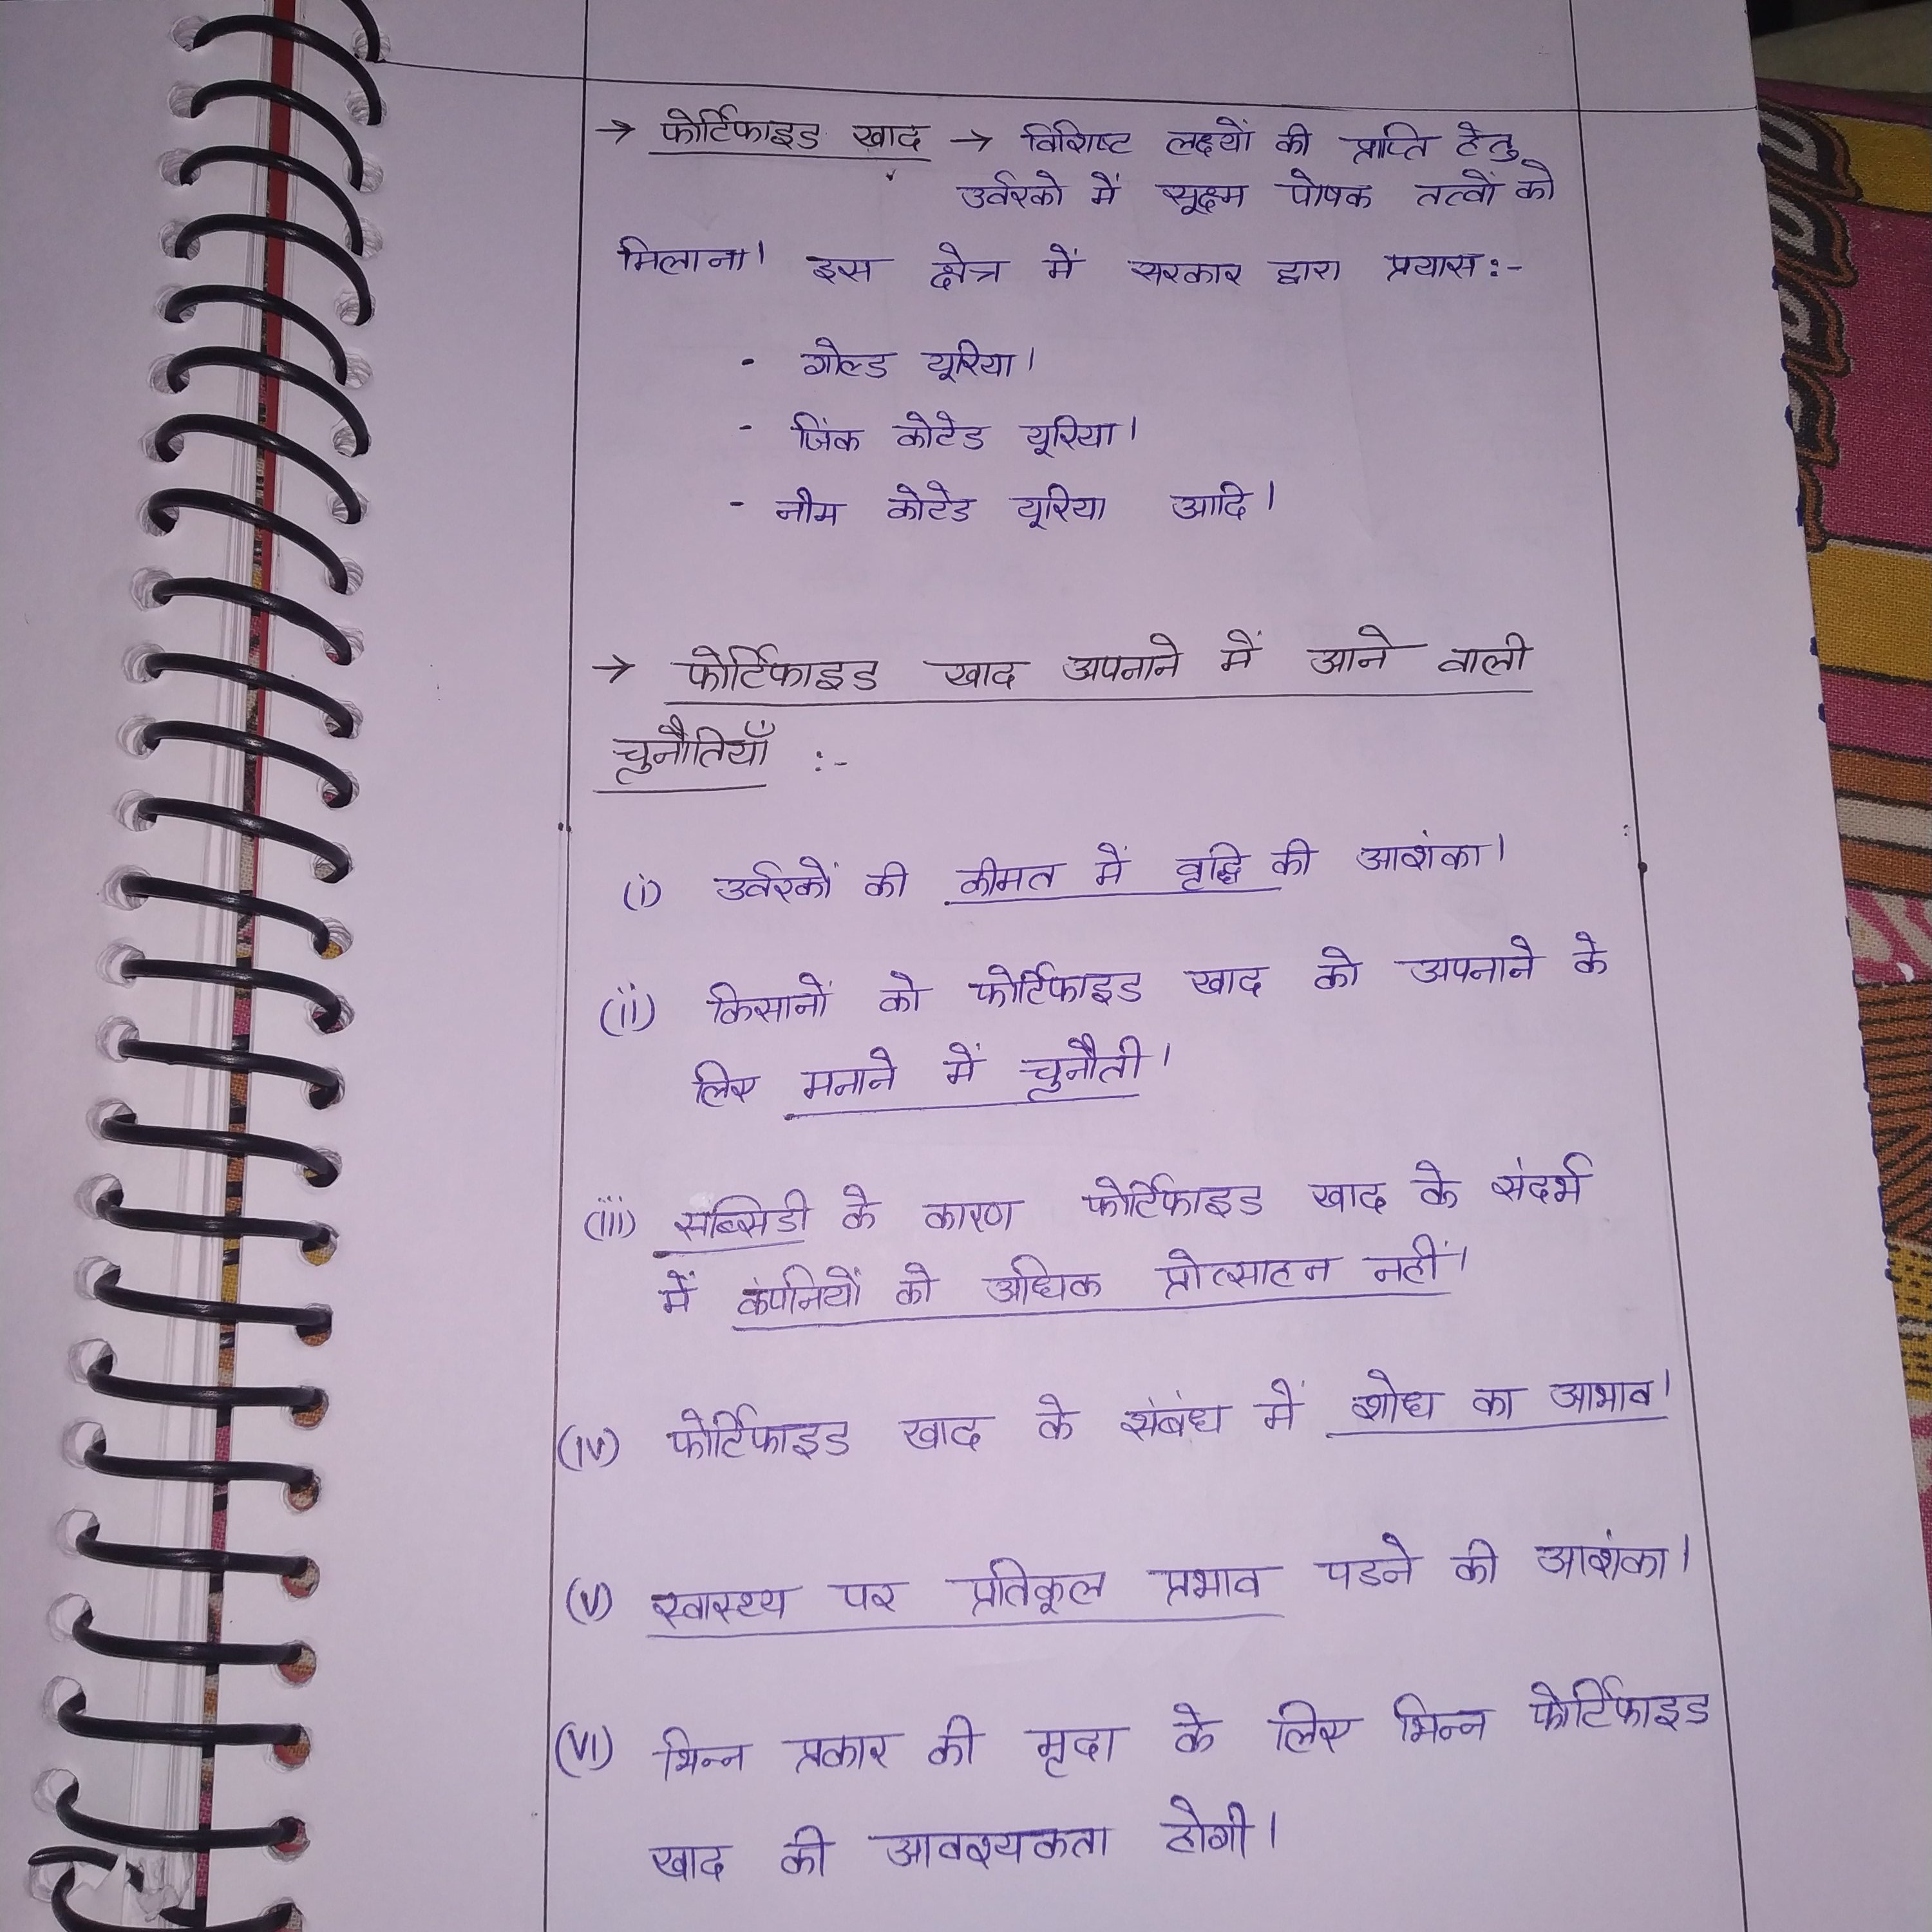 → फोर्टिफाइड खाद → विशिष्ट लक्ष्यों की प्राप्ति हेतु
उर्वरको में सूक्ष्म पोषक तत्वों को
मिलाना। इस क्षेत्र में सरकार द्वारा प्रयास :-
- गोल्ड यूरिया।
- जिंक कोटेड यूरिया।
- नीम कोटेड यूरिया आदि।
→ फोर्टिफाइड खाद अपनाने में आने वाली
चुनौतियाँ :-
(i) उर्वरकों की कीमत में वृद्धि की आशंका।
(ii) किसानों को फोर्टिफाइड खाद को अपनाने के
लिए मनाने में चुनौती।
(iii) सब्सिडी के कारण फोर्टिफाइड खाद के संदर्भ
में कंपनियों को अधिक प्रोत्साहन नहीं।
(iv) फोर्टिफाइड खाद के संबंध में शोध का आभाव।
(v) स्वास्थ्य पर प्रतिकूल प्रभाव पडने की आशंका।
(vi) भिन्न प्रकार की मृदा के लिए भिन्न फोर्टिफाइड
खाद की आवश्यकता होगी।